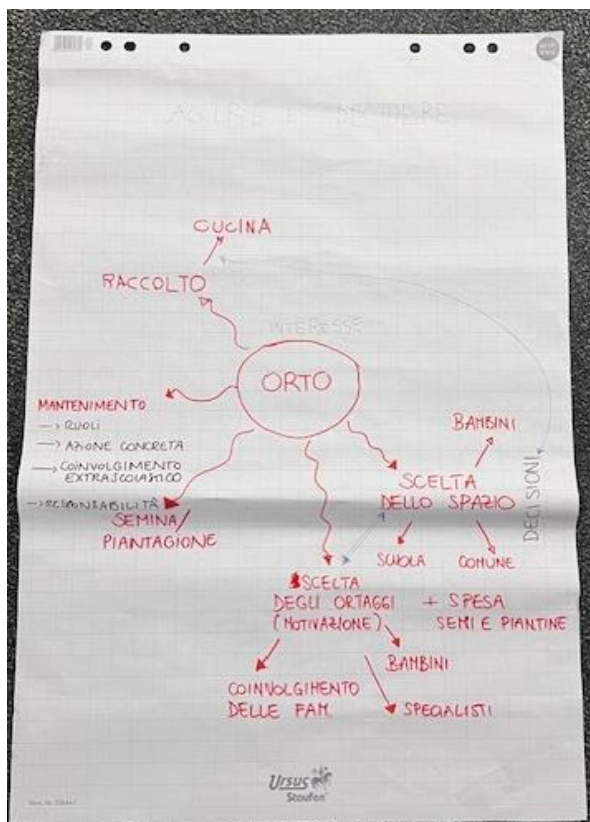 AGIRE E DECIDERE
CUCINA
RACCOLTO
INTERESSE
ORTO
MANTENIMENTO
→ RUOLI
→ AZIONE CONCRETA
→ COINVOLGIMENTO
EXTRASCOLASTICO
→ RESPONSABILITÀ
SEMINA/
PIANTAGIONE
BAMBINI
SCELTA
DELLO SPAZIO
SCUOLA
COMUNE
DECISIONI
SCELTA
DEGLI ORTAGGI + SPESA
(MOTIVAZIONE) SEMI E PIANTINE
BAMBINI
COINVOLGIMENTO
DELLE FAM.
SPECIALISTI
Ursus
Staufen